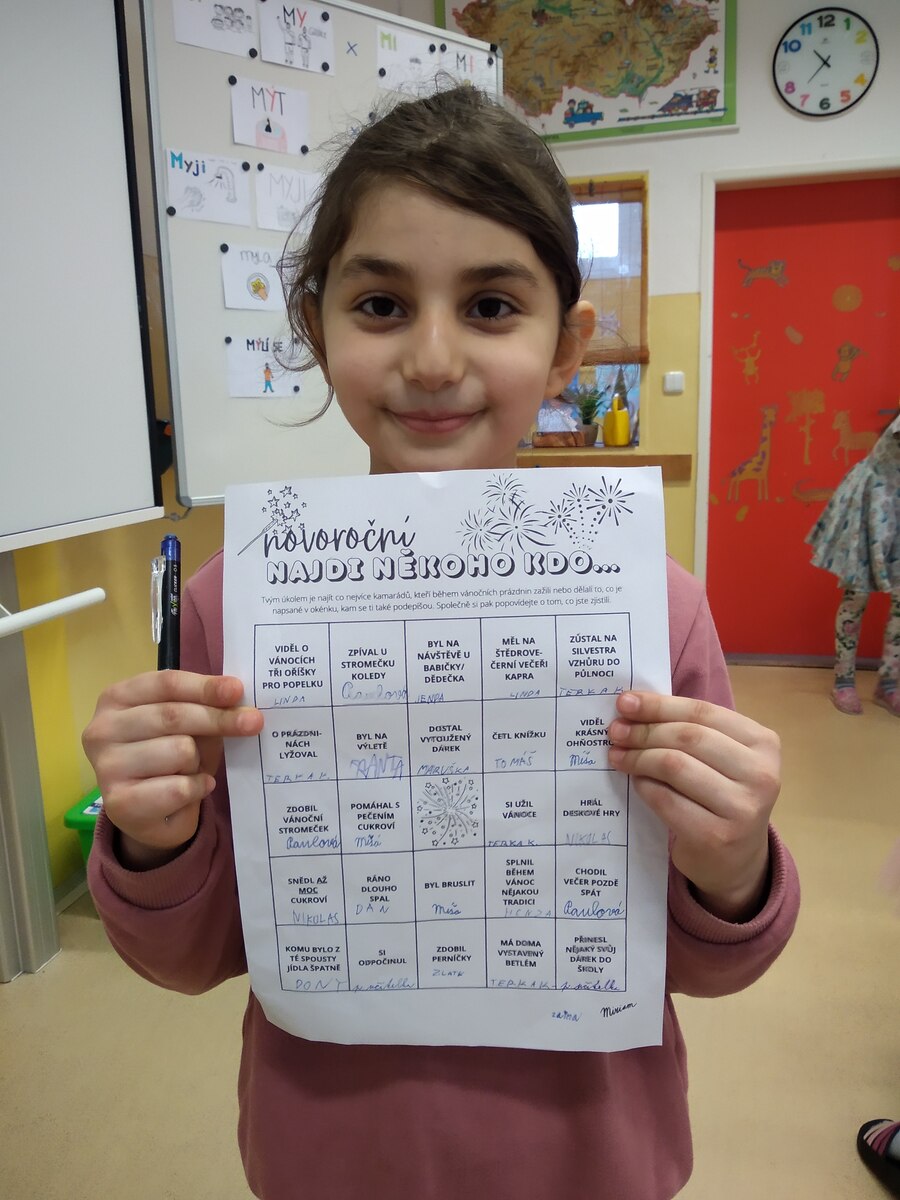 MY
MI
MÝT
Myji
MYJU
myla
MYLÍ SE
12
1
2
10
11
7
6
5
novoroční
NAJDI NĚKOHO KDO...
Tvým úkolem je najít co nejvíce kamarádů, kteří během vánočních prázdnin zažili nebo dělali to, co je
napsané v okénku, kam se ti také podepíšou. Společně si pak popovídejte o tom, co jste zjistili.
VIDĚL O
VÁNOCÍCH
TŘI OŘÍŠKY
PRO POPELKU
LINDA
ZPÍVAL U
STROMEČKU
KOLEDY
Pavlová
BYL NA
NÁVŠTĚVĚ U
BABIČKY/
DĚDEČKA
JENDA
MĚL NA
ŠTĚDROVE-
ČERNÍ VEČEŘI
KAPRA
LINDA
ZŮSTAL NA
SILVESTRA
VZHŮRU DO
PŮLNOCI
TERKA K
O PRÁZDNI-
NÁCH
LYŽOVAL
TERKA K.
BYL NA
VÝLETĚ
DOSTAL
VYTOUŽENÝ
DÁREK
MARUŠKA
ČETL KNÍŽKU
TOMÁŠ
VIDĚL
KRÁSNÝ
OHŇOSTRO
Míša
ZDOBIL
VÁNOČNÍ
STROMEČEK
Pavlová
POMÁHAL S
PEČENÍM
CUKROVÍ
Míšá
SI UŽIL
VÁNOCE
TERKA K.
HRÁL
DESKOVÉ HRY
NIKOLAS
SNĚDL AŽ
MOC
CUKROVÍ
NIKOLAS
RÁNO
DLOUHO
SPAL
DAN
BYL BRUSLIT
Míša
SPLNIL
BĚHEM
VÁNOC
NĚJAKOU
TRADICI
CHODIL
VEČER POZDĚ
SPÁT
Pavlová
KOMU BYLO Z
TÉ SPOUSTY
JÍDLA ŠPATNĚ
DONY
SI
ODPOČINUL
p. učitelka
ZDOBIL
PERNÍČKY
ZLATA
MÁ DOMA
VYSTAVENÝ
BETLÉM
TERKA K.
PŘINESL
NĚJAKÝ SVŮJ
DÁREK DO
ŠKOLY
p. učitelka
Miriam